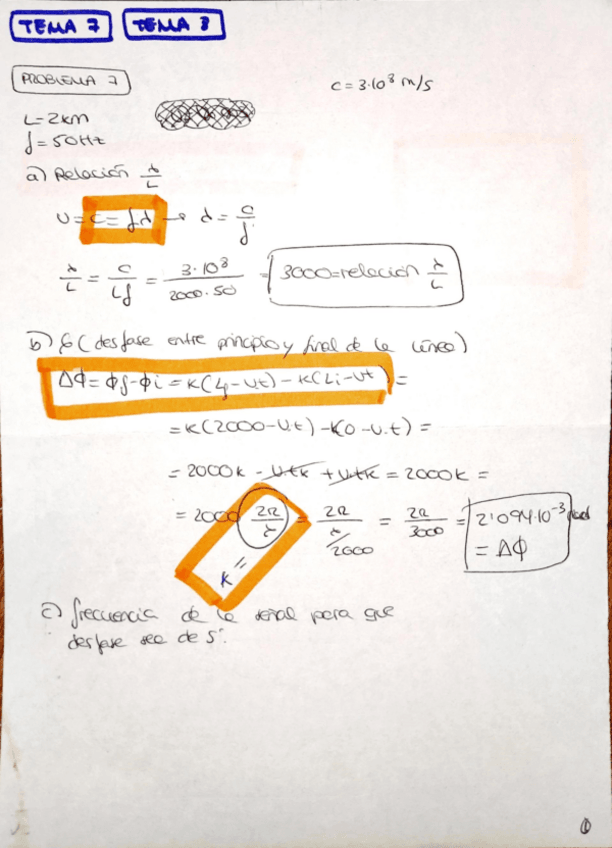 TEMA 7 TEMA 8
PROBLEMA 7
c = 3·10⁸ m/s
L = 2km
f = 50Hz
a) Relación λ/L
v = c = fλ → λ = c/f
λ/L = c/Lf = 3·10⁸/2000·50 = 3000 = relación λ/L
b) (desfase entre principio y final de la línea)
ΔΦ = Φf - Φi = k(Lf - vt) - k(Li - vt) =
= k(2000 - v.t) - k(0 - v.t) =
= 2000k - vtk + vtk = 2000k =
= 2000 2π/λ = 2π/λ/2000 = 2π/3000 = 2'094·10⁻³ rad
k = = ΔΦ
c) frecuencia de la señal para que
desfase sea de 5°.
1